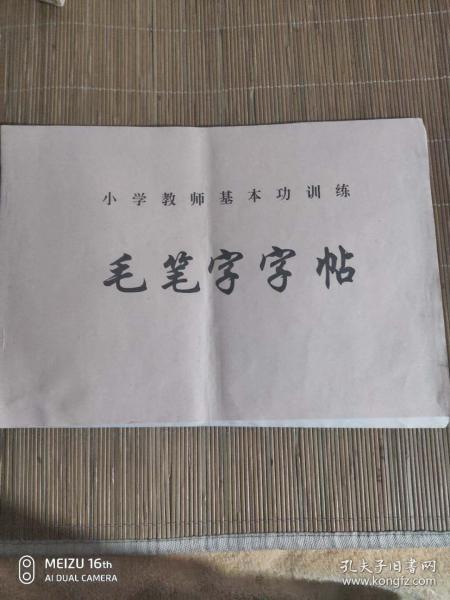 小学教师基本功训练
毛笔字字帖
MEIZU 16th
AI DUAL CAMERA
孔夫子旧书网
www.kongfz.com